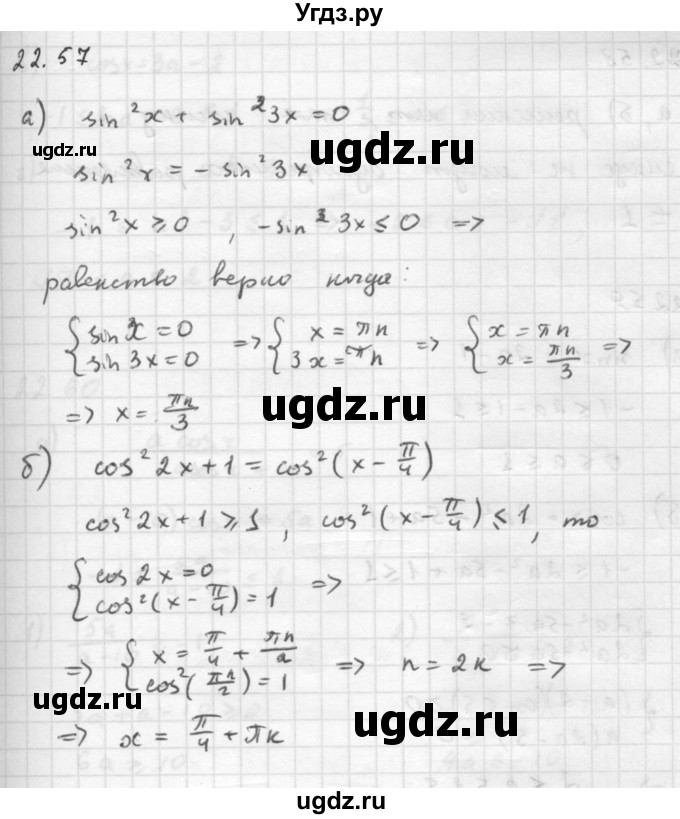 Угдз.ру
22.57
а) sin²x + sin²3x = 0
ugdz.ru
ugdz.ru
sin²x = - sin²3x
sin²x ⩾ 0 , -sin²3x ≤ 0 =>
равенство верно когда:
{ sin x = 0 => { x = πn => { x = πn =>
{ sin 3x = 0 { 3x = πn { x = πn/3
ugdz.ru
ugdz.ru
=> x = πn/3
б) cos²2x + 1 = cos²(x - π/4)
cos²2x + 1 ⩾ 1 , cos²(x - π/4) ≤ 1, то
{ cos 2x = 0 =>
{ cos²(x - π/4) = 1
=> { x = π/4 + πn/2 => n = 2k =>
{ cos²(πn/2) = 1
ugdz.ru
ugdz.ru
=> x = π/4 + πk
ugdz.ru